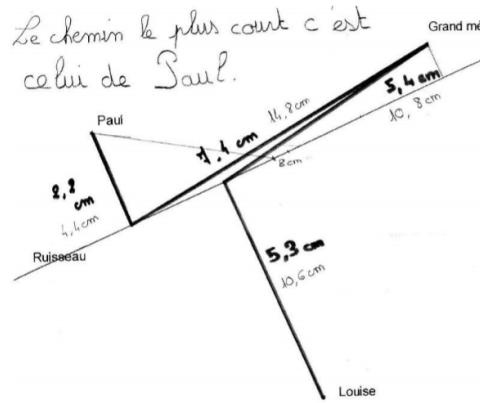 Le chemin le plus court c'est
celui de Paul.
Grand mè
5,4 cm
10,8cm
14,8cm
Paul
7,4 cm
8cm
2,2
cm
4,4cm
Ruisseau
5,3 cm
10,6cm
Louise